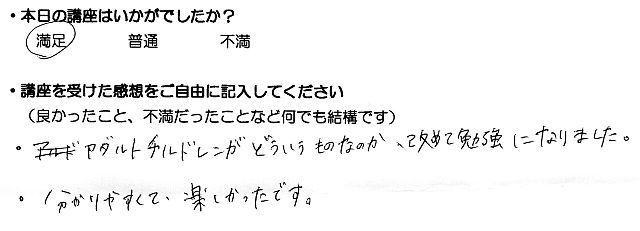 ・本日の講座はいかがでしたか？
満足 普通 不満
・講座を受けた感想をご自由に記入してください
（良かったこと、不満だったことなど何でも結構です）
・アダルトチルドレンがどういうものなのか、改めて勉強になりました。
・分かりやすくて、楽しかったです。